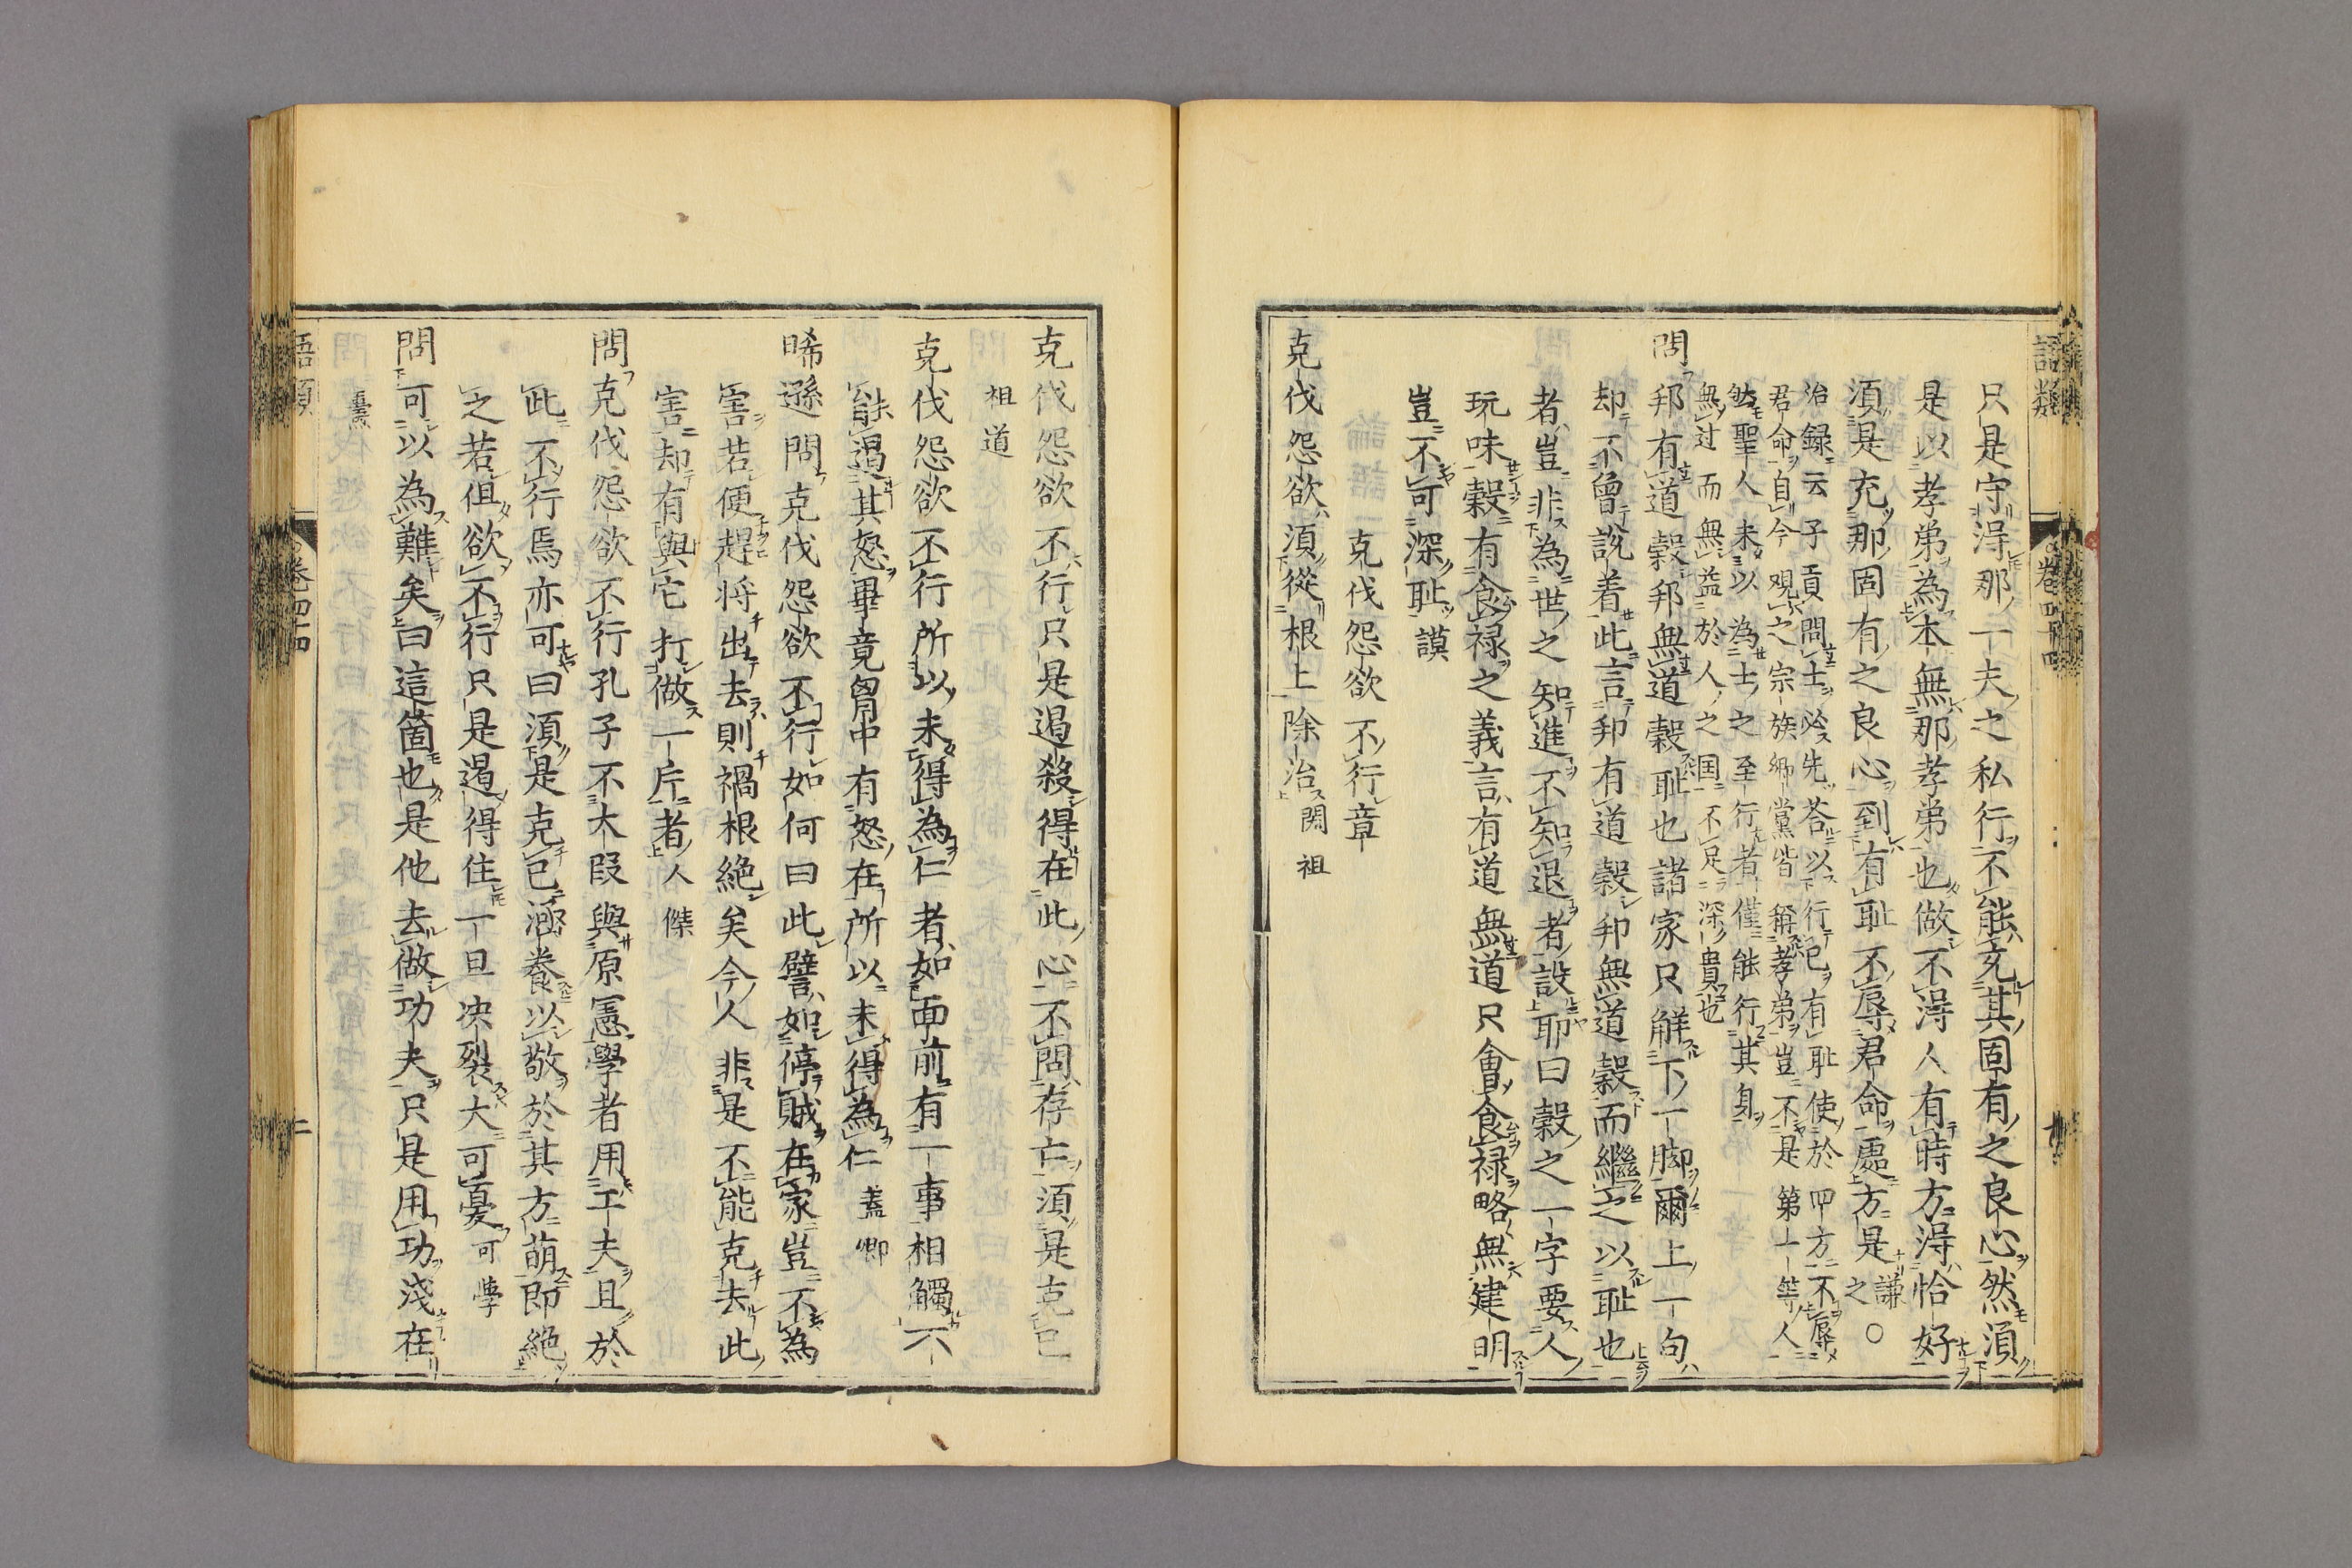 語類
卷四十四
只是守得那一夫之私行不能充其固有之良心然須
是以孝弟為本無那孝弟也做不得人有時方得恰好
須是充那固有之良心到有耻不辱君命處方是謙之○
治録云子貢問士必先荅以行己有耻使於四方不辱
君命自今觀之宗族鄉黨皆稱孝弟豈不是第一等人
然聖人未以為士之至行者僅能行其身
無过而無益於人之国不足深貴也
問邦有道穀邦無道穀耻也諸家只解下一脚爾上一句
却不曾說着此言邦有道穀邦無道穀而繼之以耻也
者豈非為世之知進不知退者設耶曰穀之一字要人
玩味穀有食禄之義言有道無道只會食禄略無建明
豈不可深耻謨
克伐怨欲不行章
克伐怨欲須從根上除治閎祖
克伐怨欲不行只是遏殺得在此心不問存亡須是克己
祖道
克伐怨欲不行所以未得為仁者如面前有一事相觸不
能遏其怒畢竟胷中有怒在所以未得為仁蓋卿
晞遜問克伐怨欲不行如何曰此譬如停賊在家豈不為
害若便趕將出去則禍根絶矣今人非是不能克去此
害却有與它打做一片者人傑
問克伐怨欲不行孔子不大叚與原憲學者用工夫且於
此不行焉亦可曰須是克己涵養以敬於其方萌即絶
之若但欲不行只是遏得住一旦决裂大可憂可學
問可以為難矣曰這箇也是他去做功夫只是用功淺在
燾
語類
卷四十四
二